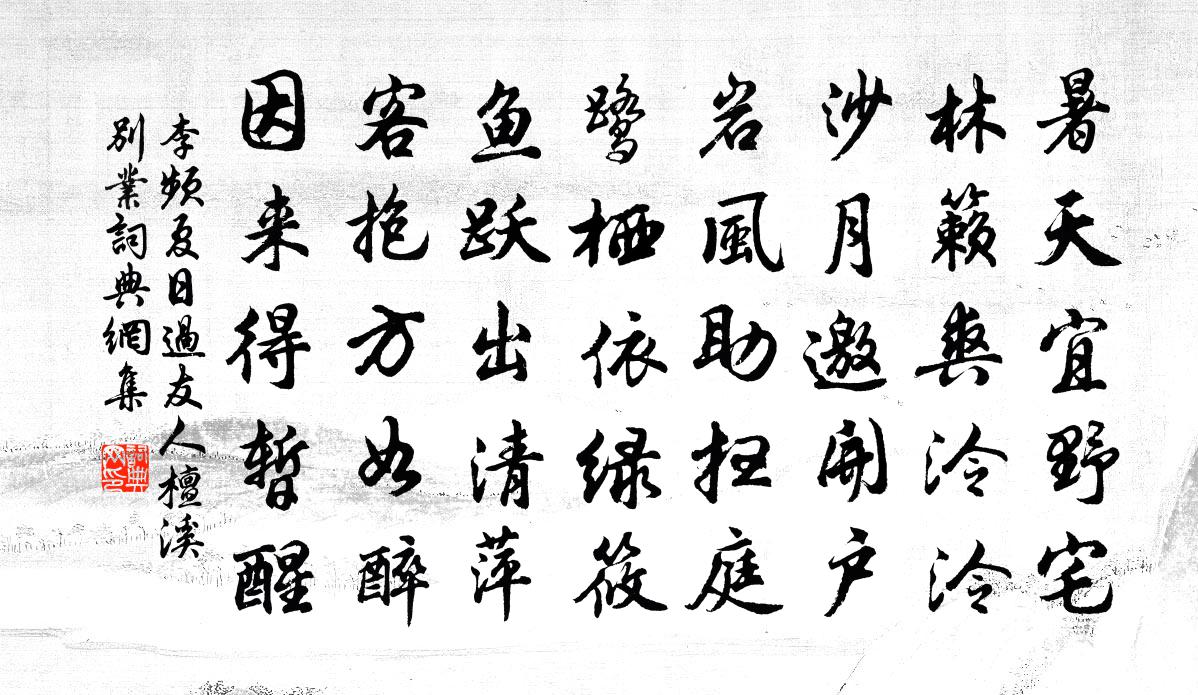 暑天宜野宅
林籁爽泠泠
沙月邀开户
岩风助扫庭
鹭栖依绿筱
鱼跃出清萍
客抱方如醉
因来得暂醒
李频夏日過友人檀溪
别業詞典網集
詞典網印